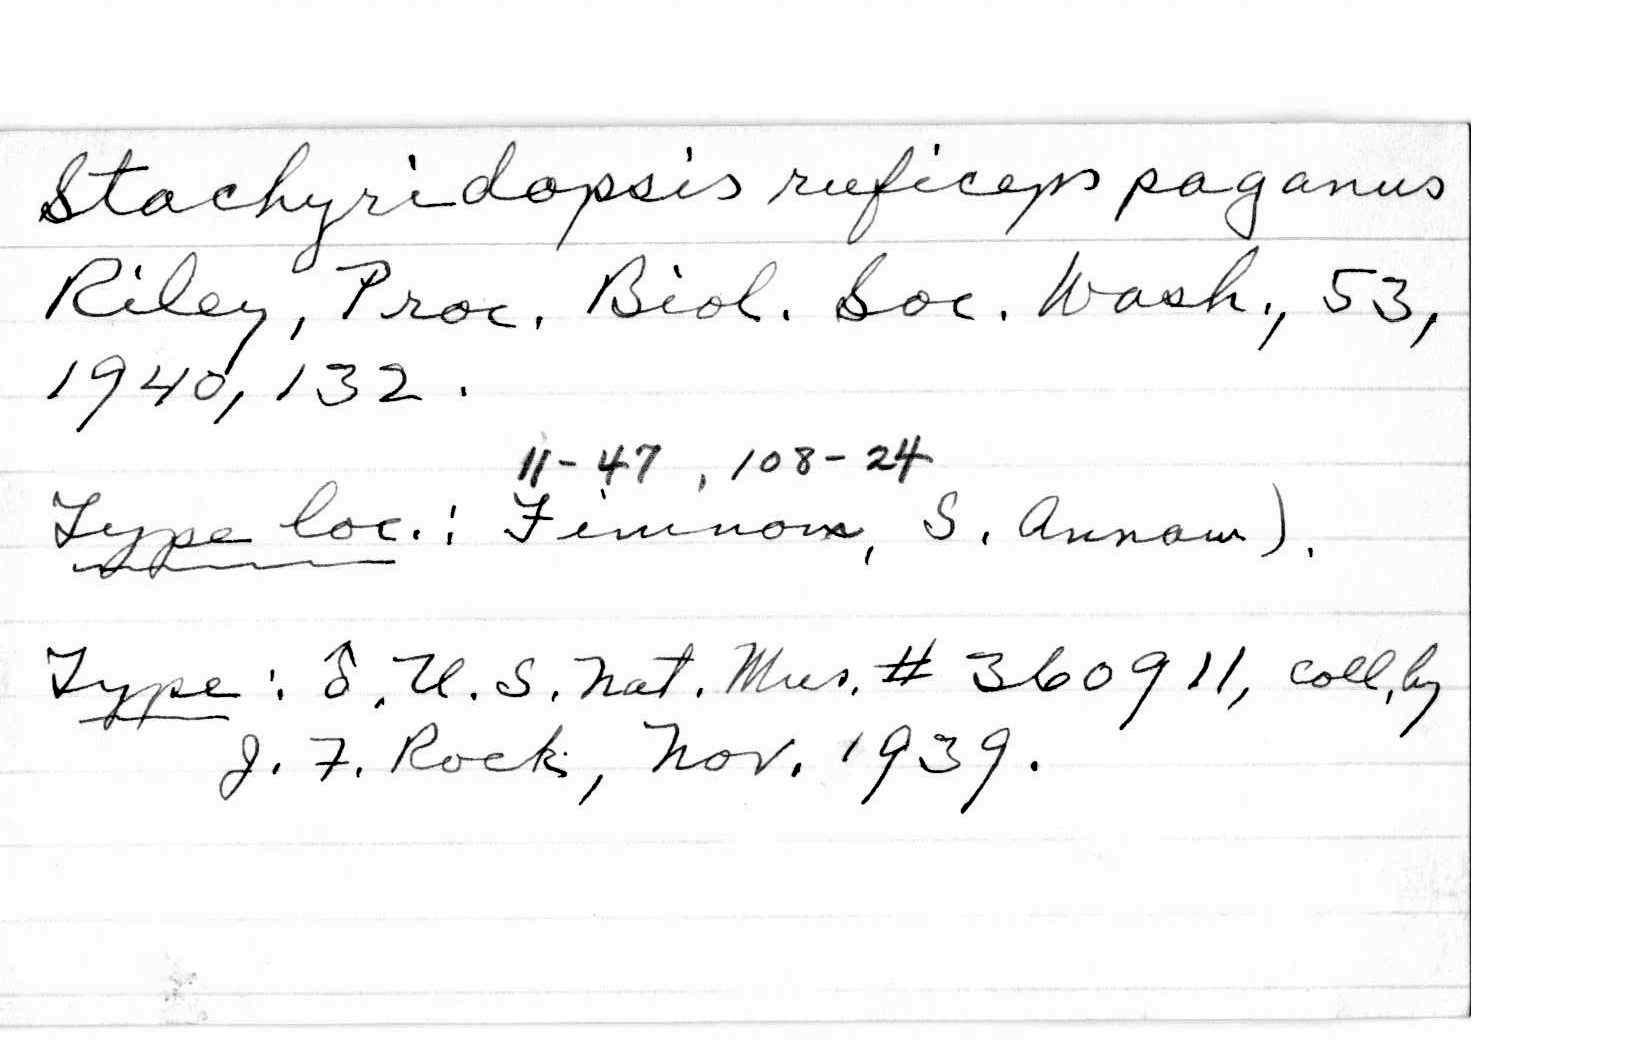 Stachyridopsis ruficeps paganus
Riley, Proc. Biol. Soc. Wash., 53,
1940, 132.
11-47, 108-24
Type loc.: Fimnom, S. Annam).
Type: ♂, U.S. Nat. Mus. # 360911, coll. by
J. F. Rock, Nov. 1939.